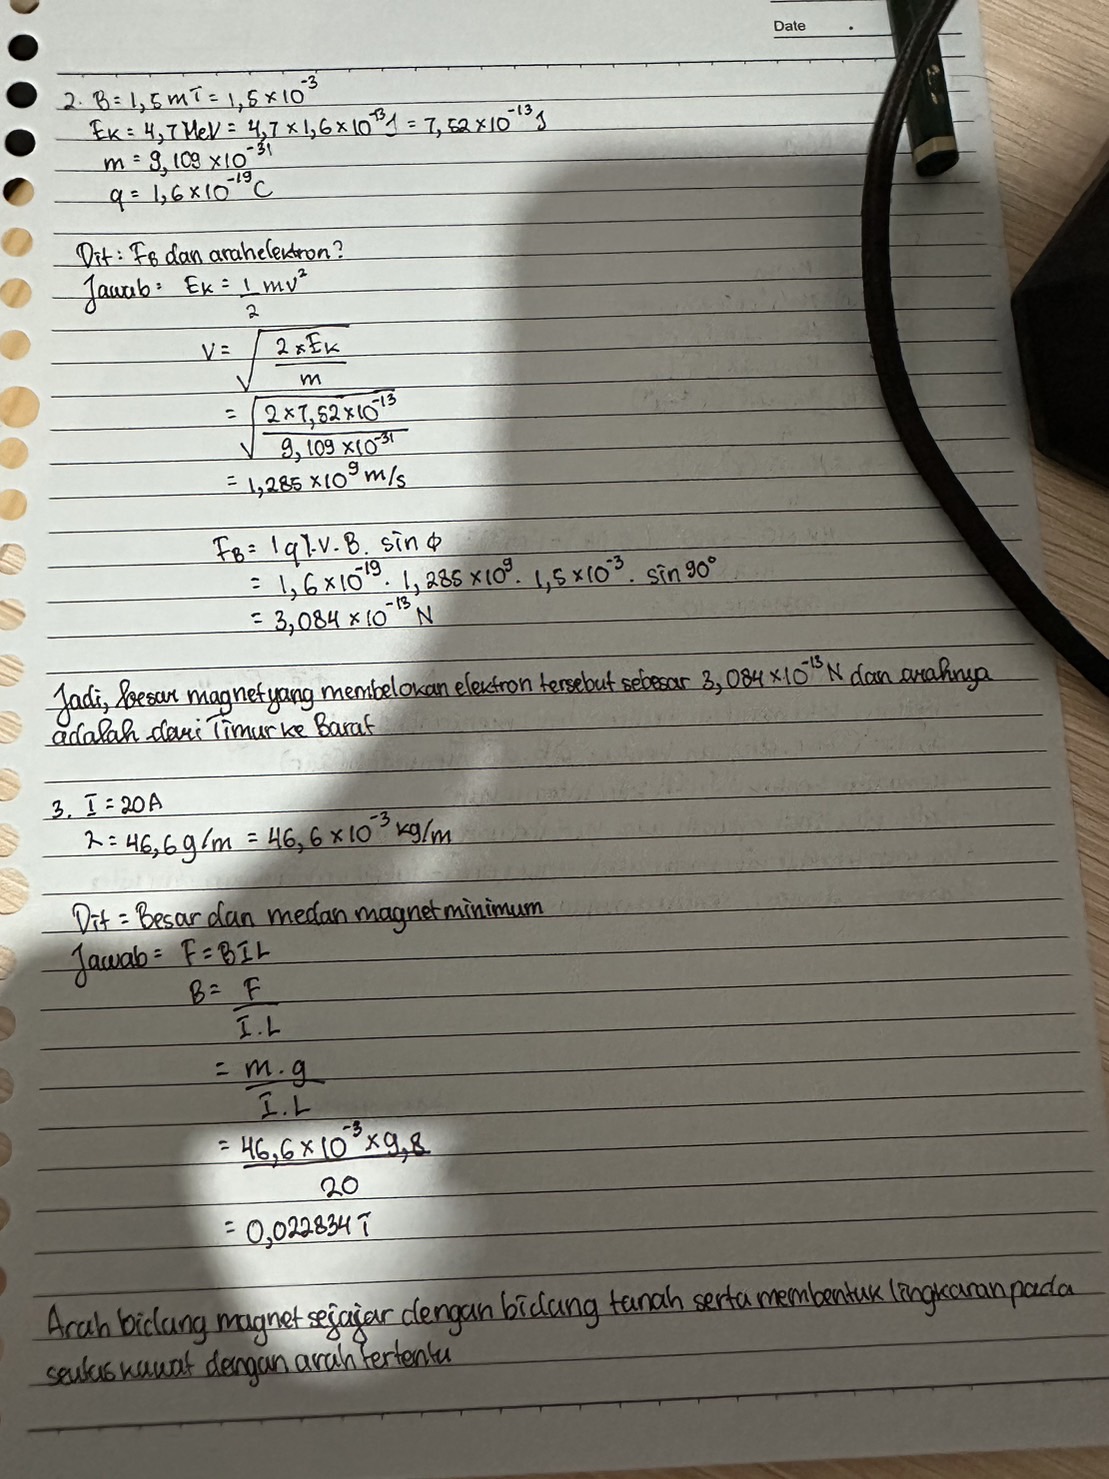 Date .
2. B = 1,5 mT = 1,5 × 10⁻³
Ek = 4,7 MeV = 4,7 × 1,6 × 10⁻¹³ J = 7,52 × 10⁻¹³ J
m = 9,109 × 10⁻³¹
q = 1,6 × 10⁻¹⁹ C
Dit : FB dan arah elektron?
Jawab : Ek = 1/2 mv²
V = √(2 × Ek / m)
= √(2 × 7,52 × 10⁻¹³ / 9,109 × 10⁻³¹)
= 1,285 × 10⁹ m/s
FB = |q|. V. B. sin ϕ
= 1,6 × 10⁻¹⁹. 1,285 × 10⁹. 1,5 × 10⁻³. sin 90°
= 3,084 × 10⁻¹³ N
Jadi, besar magnet yang membelokan elektron tersebut sebesar 3,084 × 10⁻¹³ N dan arahnya
adalah dari Timur ke Barat
3. I = 20 A
λ = 46,6 g/m = 46,6 × 10⁻³ kg/m
Dit = Besar dan medan magnet minimum
Jawab = F = BIL
B = F / I.L
= m.g / I.L
= 46,6 × 10⁻³ × 9,8 / 20
= 0,022834 T
Arah bidang magnet sejajar dengan bidang tanah serta membentuk lingkaran pada
seutas kawat dengan arah tertentu